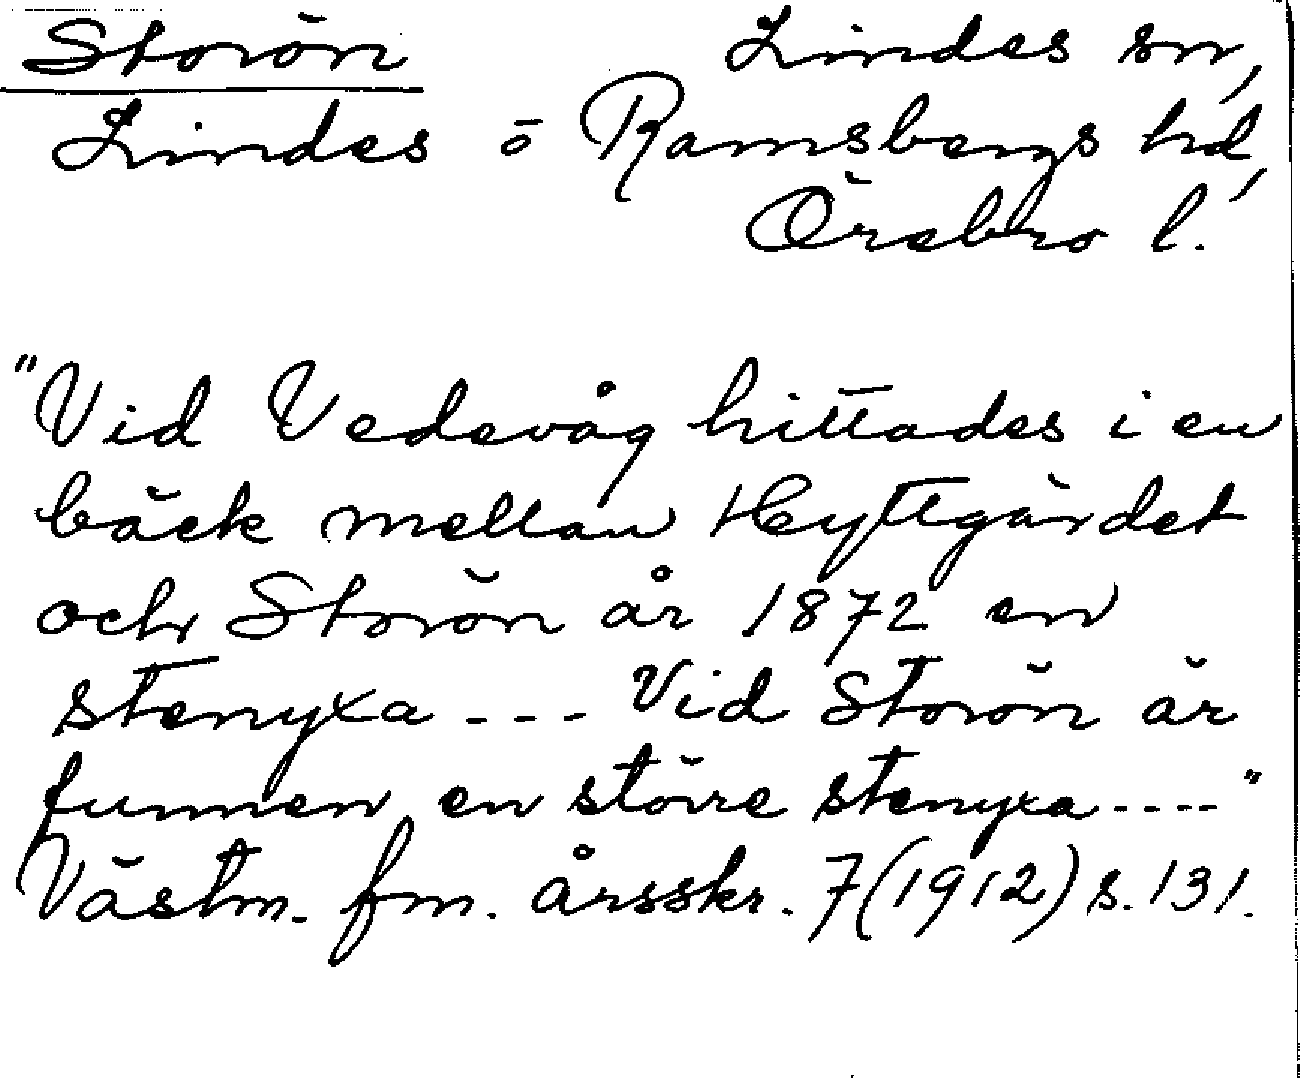 Storön Lindes sn,
Lindes o Ramsbergs hd,
Örebro l.
"Vid Vedevåg hittades i en
bäck mellan Hyttgärdet
och Storön år 1872 en
stenyxa --- Vid Storön är
funnen en större stenyxa ----"
Västm. fm. årsskr. 7 (1912) s. 131.